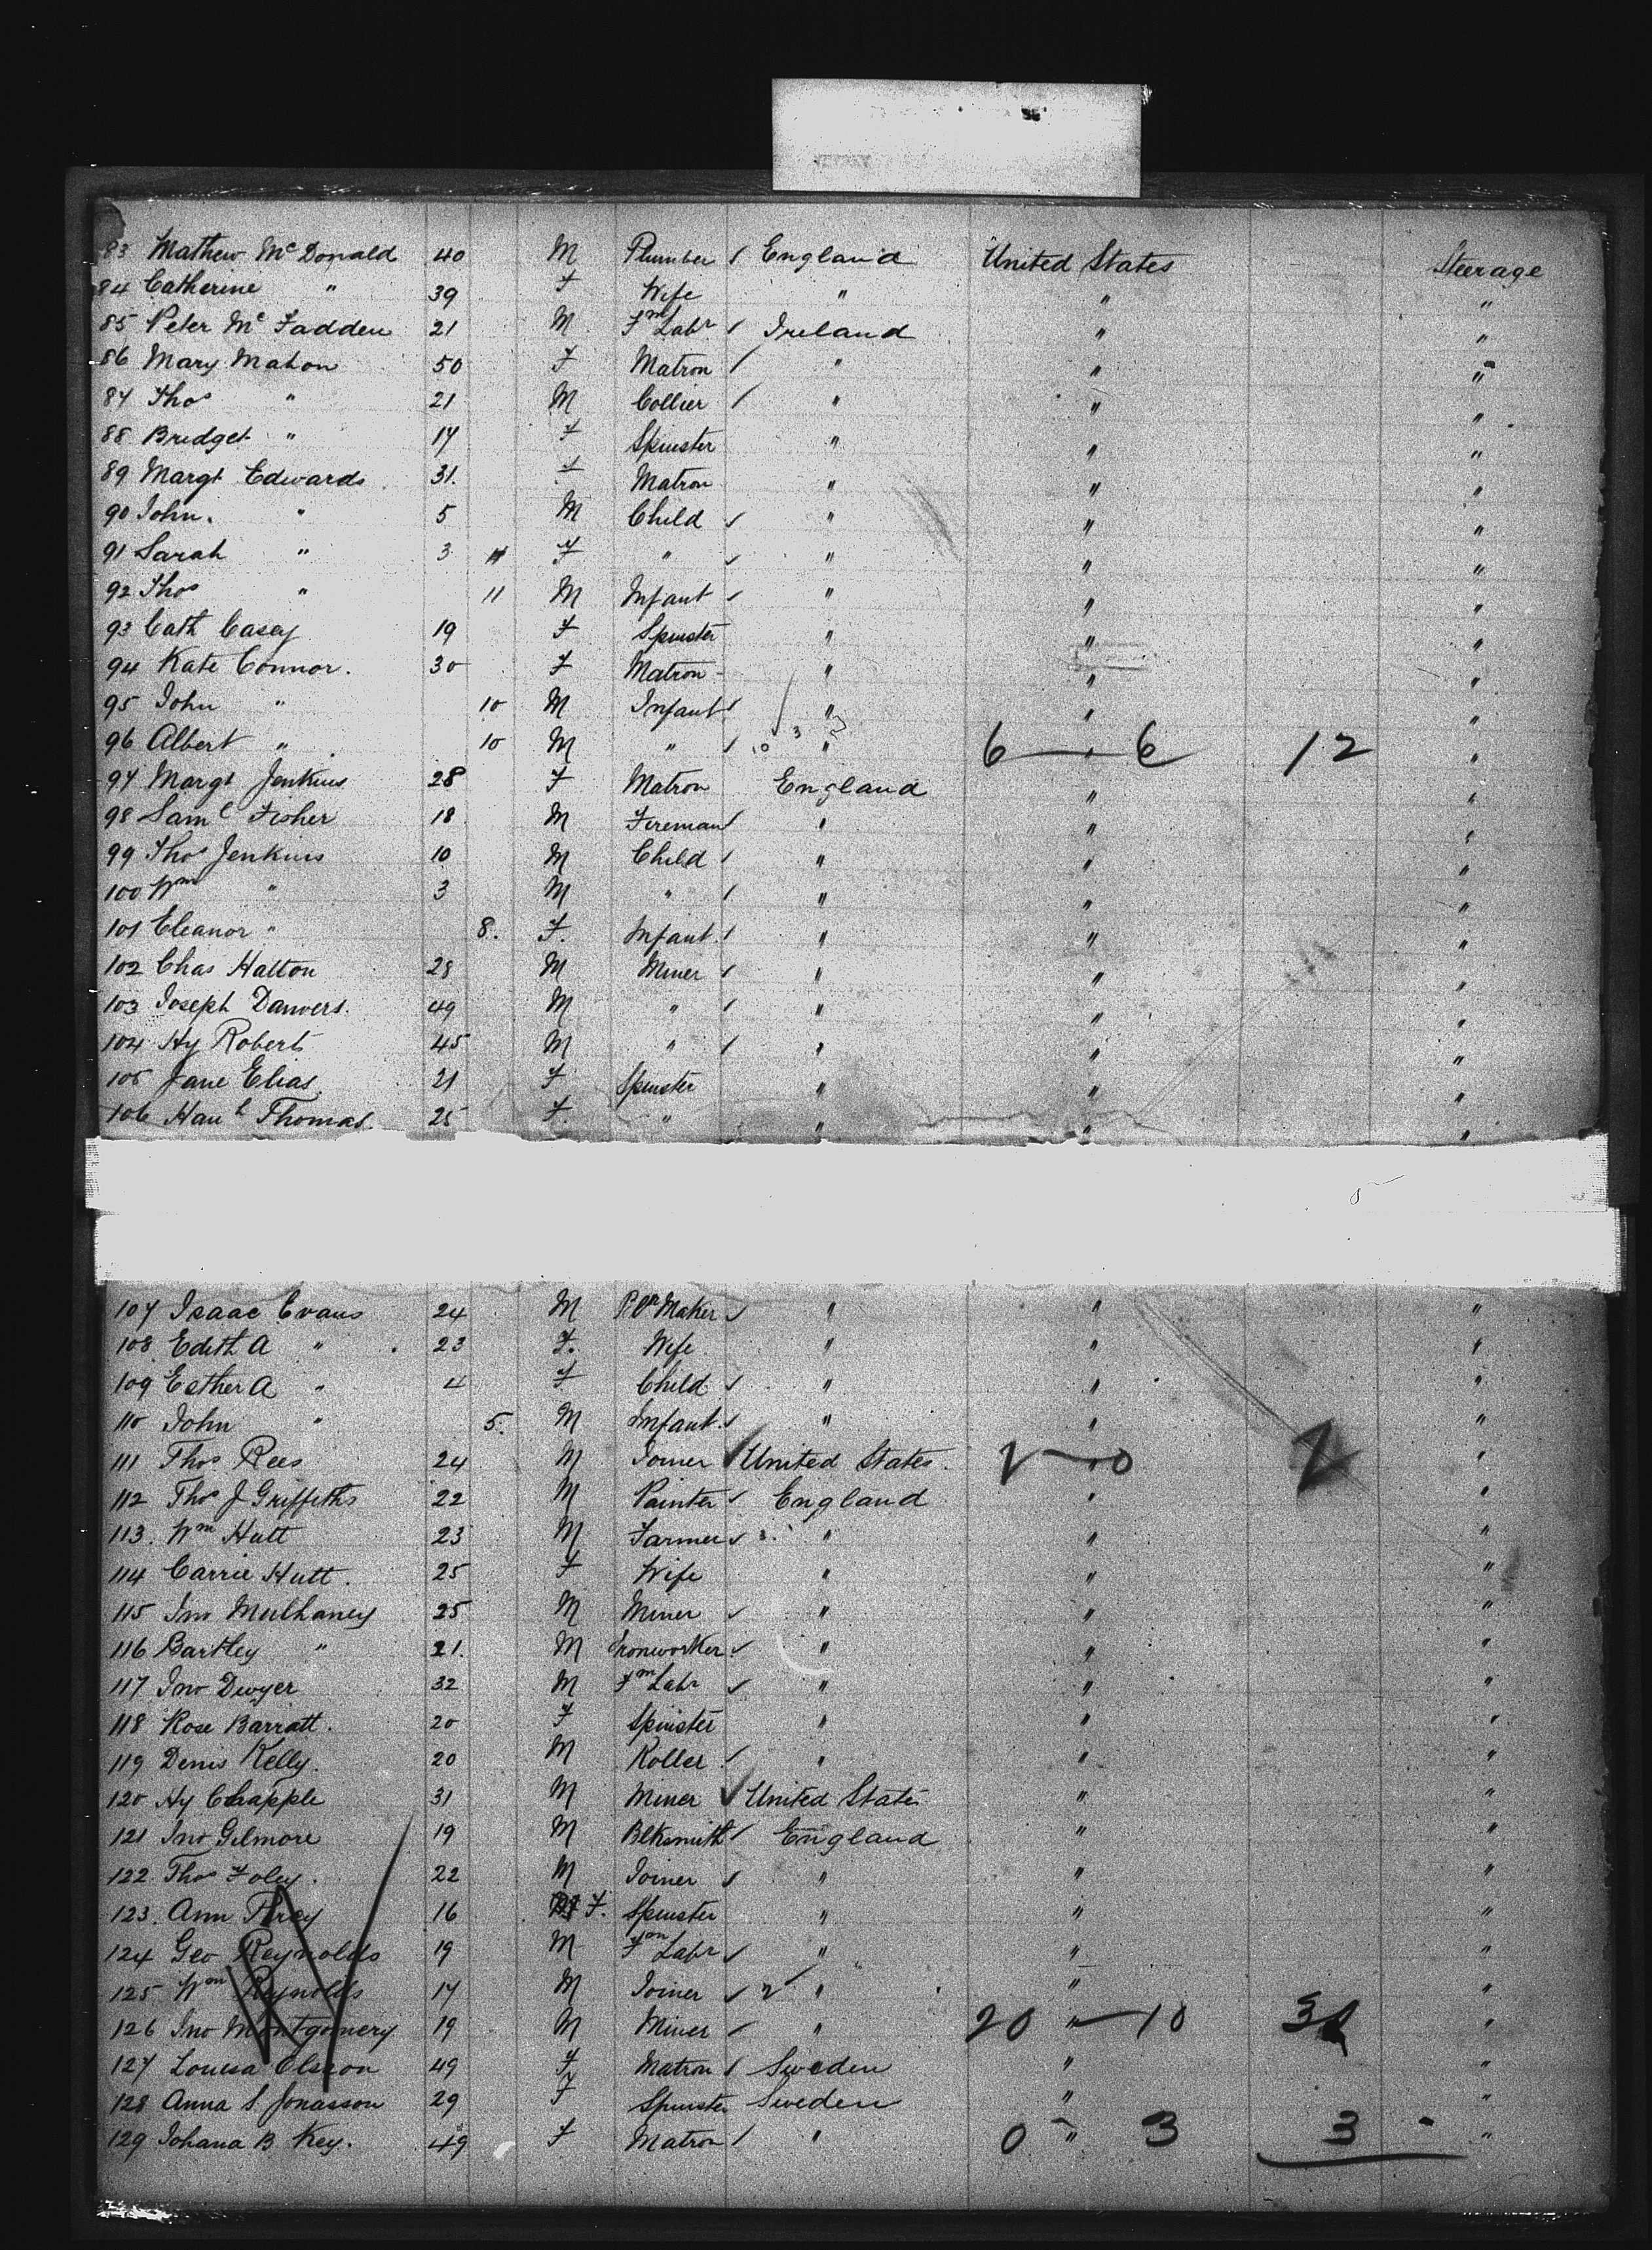 83 Mathew McDonald 40 M Plumber / England United States Steerage
84 Catherine " 39 F Wife " " "
85 Peter McFadden 21 M Fm Labr / Ireland " "
86 Mary Mahon 50 F Matron / " " "
87 Thos " 21 M Collier / " " "
88 Bridget " 17 F Spinster " " "
89 Margt Edwards 31 F Matron " " "
90 John " 5 M Child ✓ " " "
91 Sarah " 3 F " ✓ " " "
92 Thos " 11 M Infant ✓ " " "
93 Cath Casey 19 F Spinster " " "
94 Kate Connor 30 F Matron " " "
95 John " 10 M Infant / " " "
96 Albert " 10 M " / " 6 — 6 12 "
97 Margt Jenkins 28 F Matron England " "
98 Saml Fisher 18 M Fireman / " " "
99 Thos Jenkins 10 M Child / " " "
100 Wm " 3 M " / " " "
101 Eleanor " 8 F Infant / " " "
102 Chas Halton 28 M Miner / " " "
103 Joseph Danvers 49 M " / " " "
104 Hy Robert 45 M " / " " "
105 Jane Elias 21 F Spinster " " "
106 Hanh Thomas 25 F " " " "
107 Isaac Evans 24 M Maker ✓ " " "
108 Edith A " 23 F Wife " " "
109 Esther A " 4 F Child ✓ " " "
110 John " 5 M Infant ✓ " " "
111 Thos Rees 24 M Joiner ✓ United States 2 — 0 2 "
112 Thos J Griffiths 22 M Painter ✓ England " "
113 Wm Hutt 23 M Farmer ✓ " " "
114 Carrie Hutt 25 F Wife " " "
115 Jno Mulhaney 25 M Miner ✓ " " "
116 Bartley " 21 M Ironworker ✓ " " "
117 Jno Dwyer 32 M Fm Labr ✓ " " "
118 Rose Barratt 20 F Spinster " " "
119 Denis Kelly 20 M Roller / " " "
120 Hy Chapple 31 M Miner ✓ United States " "
121 Jno Gilmore 19 M Blksmith / England " "
122 Thos Foley 22 M Joiner ✓ " " "
123 Ann 16 F Spinster " " "
124 Geo Reynolds 19 M Fm Labr ✓ " " "
125 Wm Reynolds 17 M Joiner ✓ " " "
126 Jno Montgomery 19 M Miner ✓ " 20 — 10 "
127 Louisa Olsson 49 F Matron / Sweden " "
128 Anna S Jonasson 29 F Spinster Sweden " "
129 Johana B Key 49 F Matron / " 0 " 3 3 "